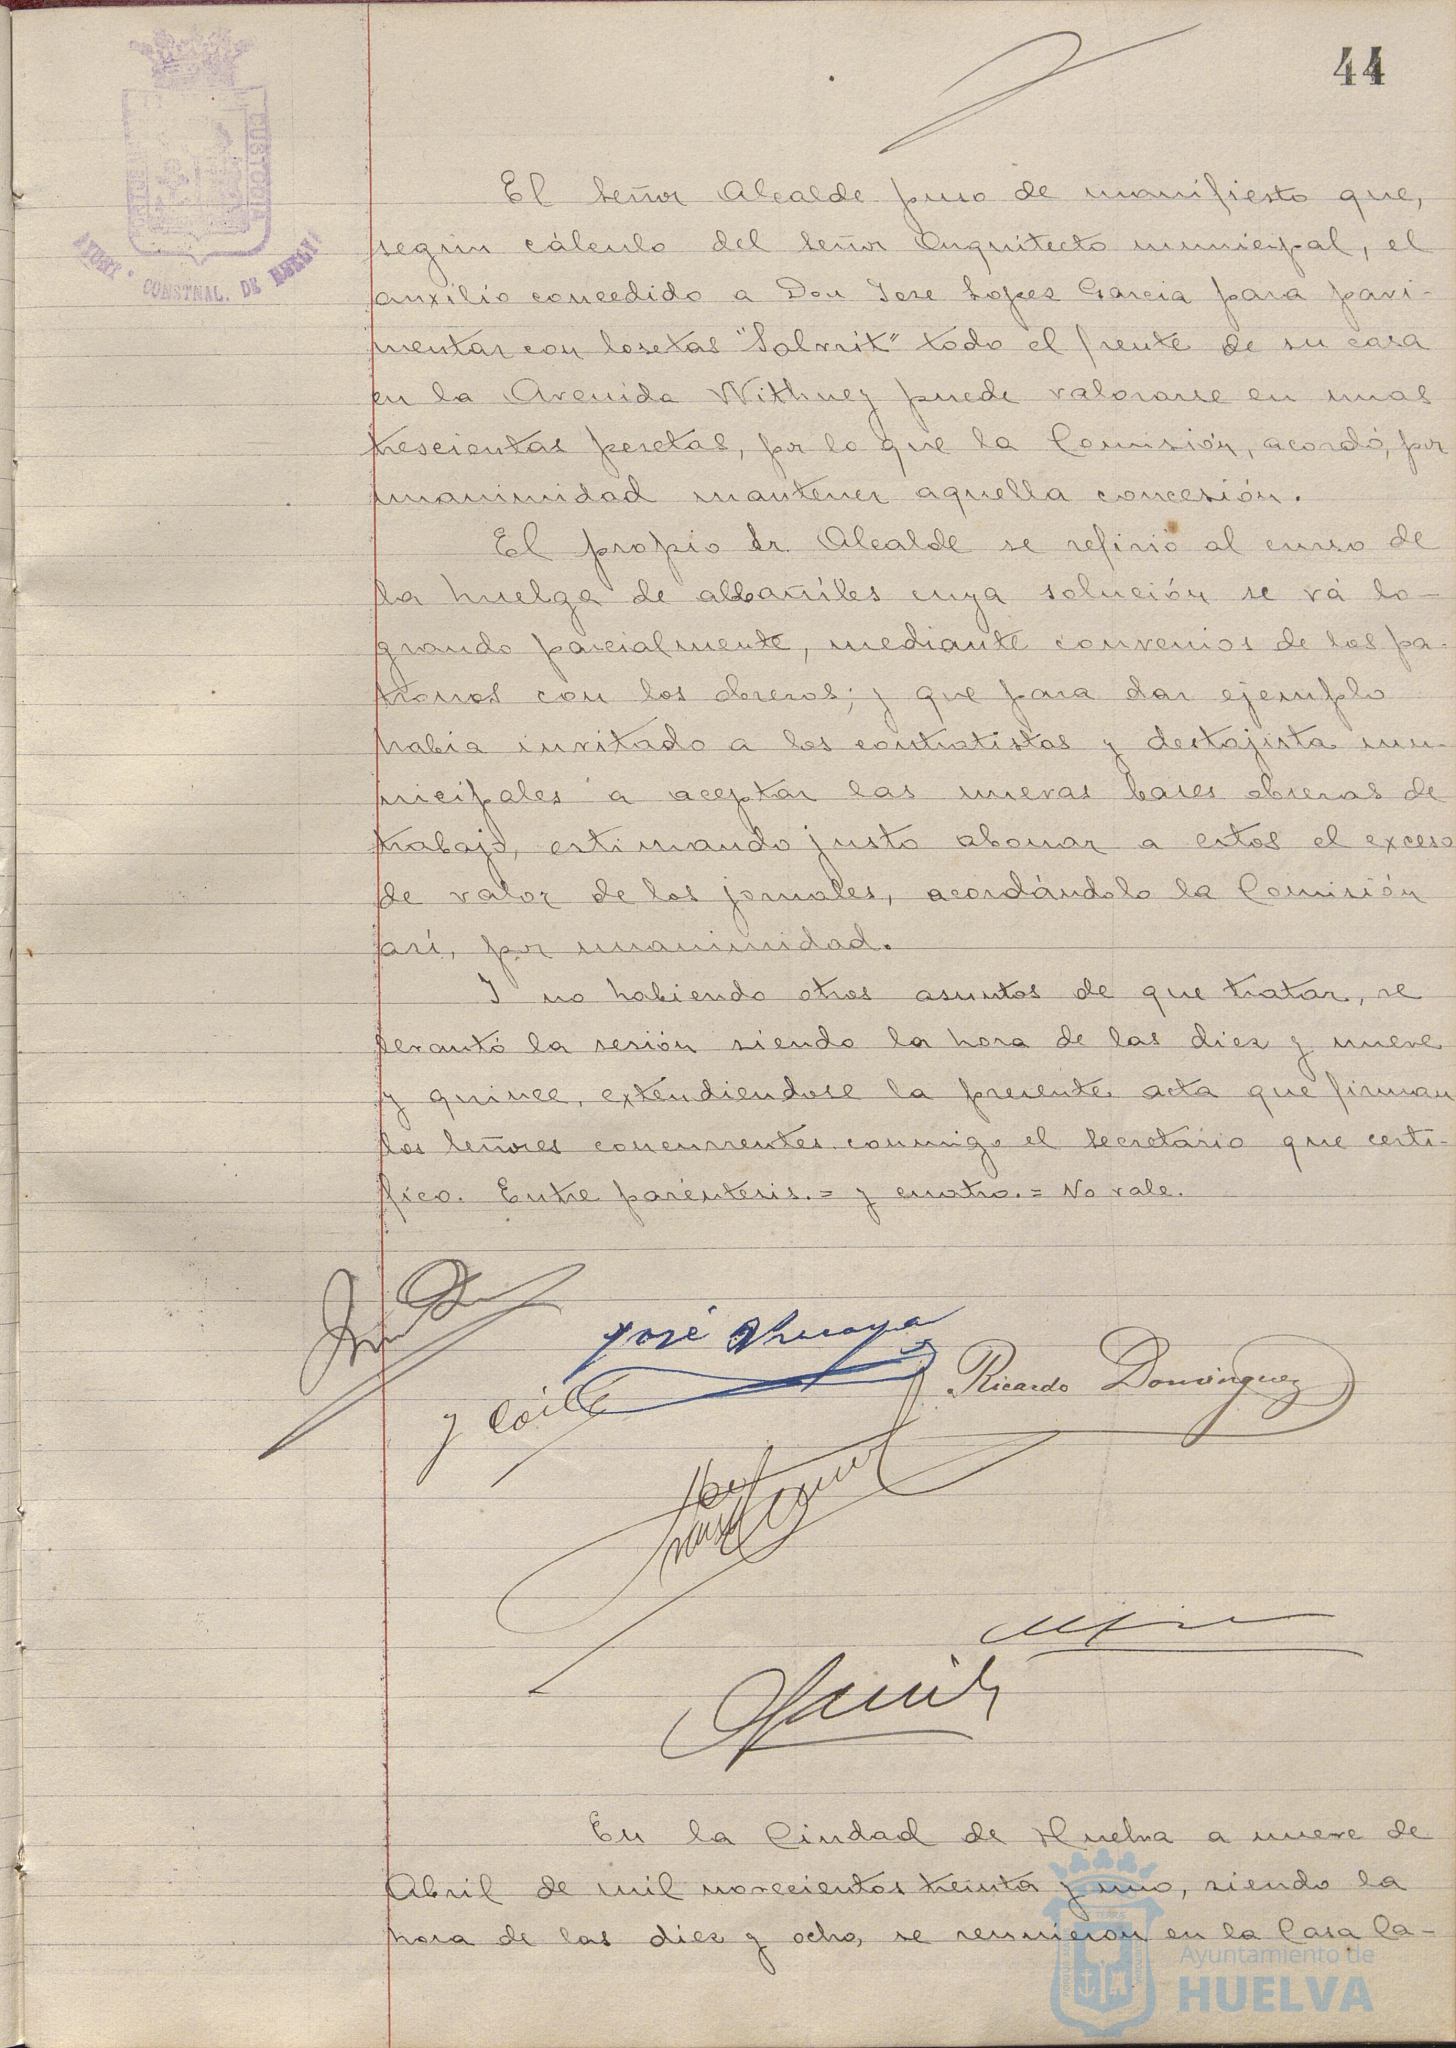 44
CUSTODIA
AYUNT. CONSTNAL. DE HUELVA
El Señor Alcalde puso de manifiesto que,
según cálculo del Señor Arquitecto municipal, el
auxilio concedido a Don Jose Lopez Garcia para pavi-
mentar con losetas "Solvrit" todo el frente de su casa
en la Avenida Withney puede valorarse en unas
trescientas pesetas, por lo que la Comisión, acordó, por
unanimidad mantener aquella concesión.
El propio Sr. Alcalde se refirió al curso de
la huelga de albañiles cuya solución se vá lo-
grando parcialmente, mediante convenios de los pa-
tronos con los obreros; y que para dar ejemplo
habia invitado a los contratistas y destajista mu-
nicipales a aceptar las nuevas bases obreras de
trabajo, estimando justo abonar a estos el exceso
de valor de los jornales, acordándolo la Comisión
así, por unanimidad.
Y no habiendo otros asuntos de que tratar, se
levantó la sesión siendo la hora de las diez y nueve
y quince, extendiendose la presente acta que firman
los Señores concurrentes conmigo el Secretario que certi-
fico. Entre paréntesis.= y cuatro.= No vale.
José
Ricardo Dominguez
En la Ciudad de Huelva a nueve de
Abril de mil novecientos treinta y uno, siendo la
hora de las diez y ocho, se reunieron en la Casa Ca-
Ayuntamiento de
HUELVA